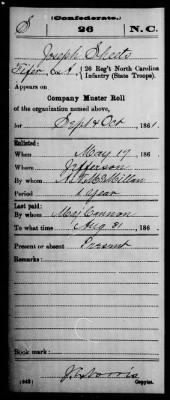 (Confederate.)
S 26 N.C.
Joseph Sheets
Fifer, Co. A, 26 Reg't North Carolina
Infantry (State Troops).
Appears on
Company Muster Roll
of the organization named above,
for Sept & Oct, 1861.
Enlisted:
When May 17, 186
Where Jefferson
By whom A. N. McMillan
Period 1 year
Last paid:
By whom Maj Cannon
To what time Aug 31, 186
Present or absent Present
Remarks:
Book mark:
(642) Copyist.